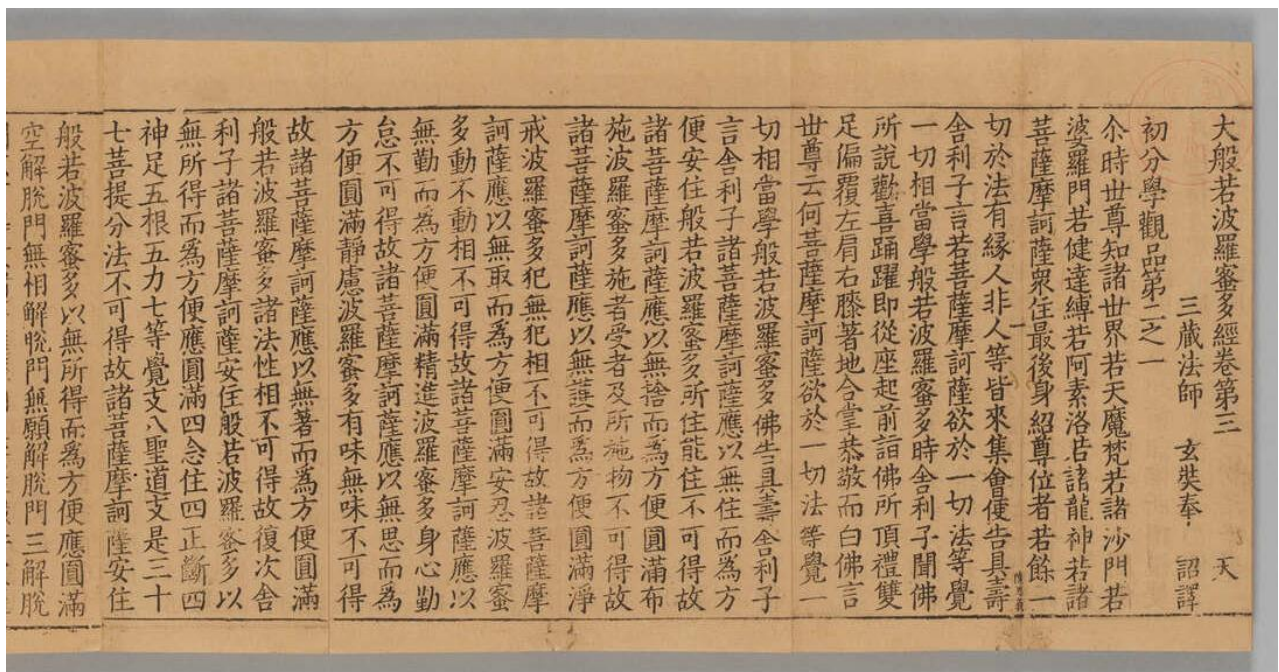 大般若波羅蜜多經卷第三 天
三藏法師 玄奘奉 詔譯
初分學觀品第二之一
尒時世尊知諸世界若天魔梵若諸沙門若
婆羅門若健達縛若阿素洛若諸龍神若諸
菩薩摩訶薩衆住最後身紹尊位者若餘一
切於法有緣人非人等皆來集會便告具壽
舍利子言若菩薩摩訶薩欲於一切法等覺
一切相當學般若波羅蜜多時舍利子聞佛
所說歡喜踊躍即從座起前詣佛所頂禮雙
足偏覆左肩右膝著地合掌恭敬而白佛言
世尊云何菩薩摩訶薩欲於一切法等覺一
切相當學般若波羅蜜多佛告具壽舍利子
言舍利子諸菩薩摩訶薩應以無住而為方
便安住般若波羅蜜多所住能住不可得故
諸菩薩摩訶薩應以無捨而為方便圓滿布
施波羅蜜多施者受者及所施物不可得故
諸菩薩摩訶薩應以無護而爲方便圓滿淨
戒波羅蜜多犯無犯相不可得故諸菩薩摩
訶薩應以無取而爲方便圓滿安忍波羅蜜
多動不動相不可得故諸菩薩摩訶薩應以
無勤而為方便圓滿精進波羅蜜多身心勤
怠不可得故諸菩薩摩訶薩應以無思而為
方便圓滿靜慮波羅蜜多有味無味不可得
故諸菩薩摩訶薩應以無著而爲方便圓滿
般若波羅蜜多諸法性相不可得故復次舍
利子諸菩薩摩訶薩安住般若波羅蜜多以
無所得而爲方便應圓滿四念住四正斷四
神足五根五力七等覺支八聖道支是三十
七菩提分法不可得故諸菩薩摩訶薩安住
般若波羅蜜多以無所得而爲方便應圓滿
空解脫門無相解脫門無願解脫門三解脫